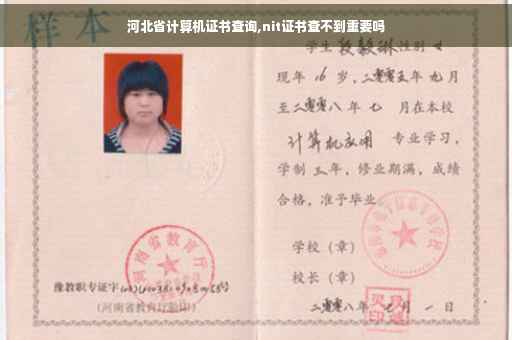 河北省计算机证书查询,nit证书查不到重要吗
样本
学生 段毅琳 性别 女
现年 16 岁，二零零五年 九 月
至二零零八 年 七 月在本校
计算机应用 专业学习，
学制 三 年，修业期满，成绩
合格，准予毕业
学校（章）
校长（章）
二零零八年 月 一 日
河南省教育厅
豫教职专证字
(河南省教育厅验印)